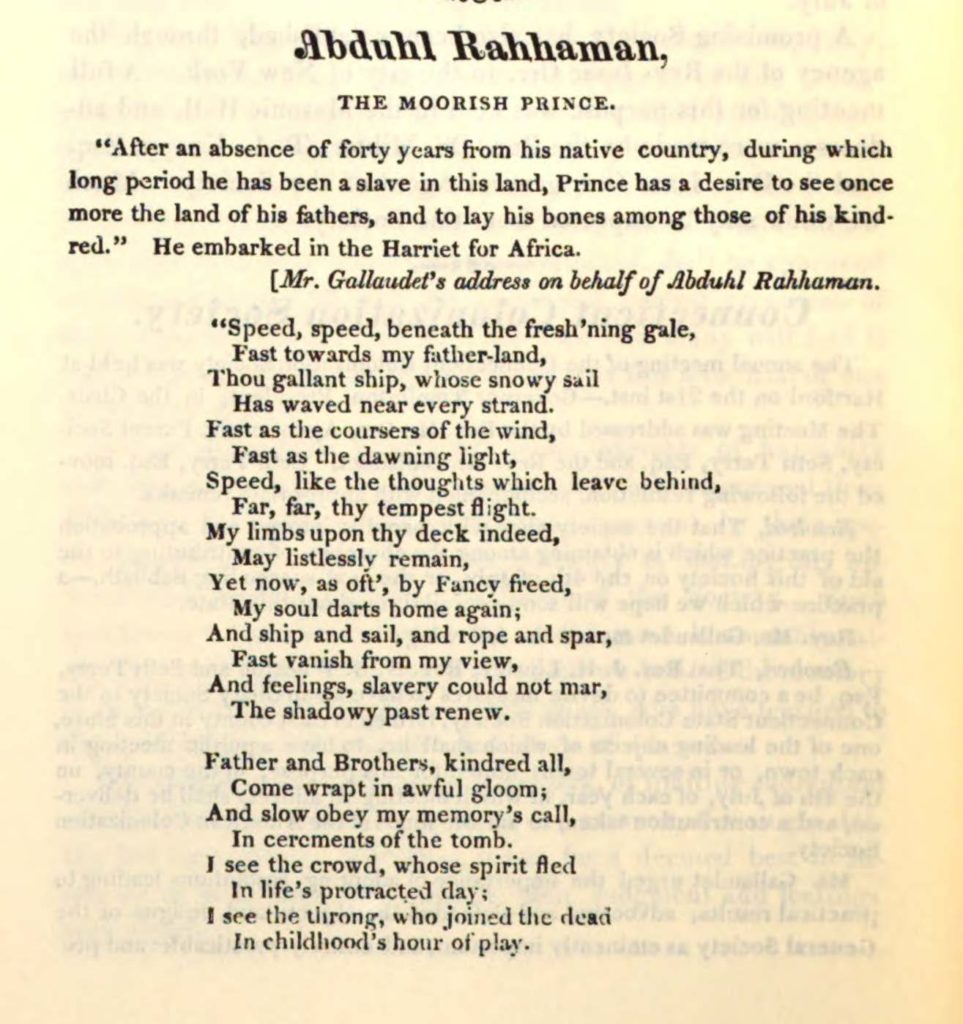 Abduhl Rahhaman,
THE MOORISH PRINCE.
"After an absence of forty years from his native country, during which
long period he has been a slave in this land, Prince has a desire to see once
more the land of his fathers, and to lay his bones among those of his kind-
red." He embarked in the Harriet for Africa.
[Mr. Gallaudet's address on behalf of Abduhl Rahhaman.
"Speed, speed, beneath the fresh'ning gale,
Fast towards my father-land,
Thou gallant ship, whose snowy sail
Has waved near every strand.
Fast as the coursers of the wind,
Fast as the dawning light,
Speed, like the thoughts which leave behind,
Far, far, thy tempest flight.
My limbs upon thy deck indeed,
May listlessly remain,
Yet now, as oft', by Fancy freed,
My soul darts home again;
And ship and sail, and rope and spar,
Fast vanish from my view,
And feelings, slavery could not mar,
The shadowy past renew.
Father and Brothers, kindred all,
Come wrapt in awful gloom;
And slow obey my memory's call,
In cerements of the tomb.
I see the crowd, whose spirit fled
In life's protracted day;
I see the throng, who joined the dead
In childhood's hour of play.